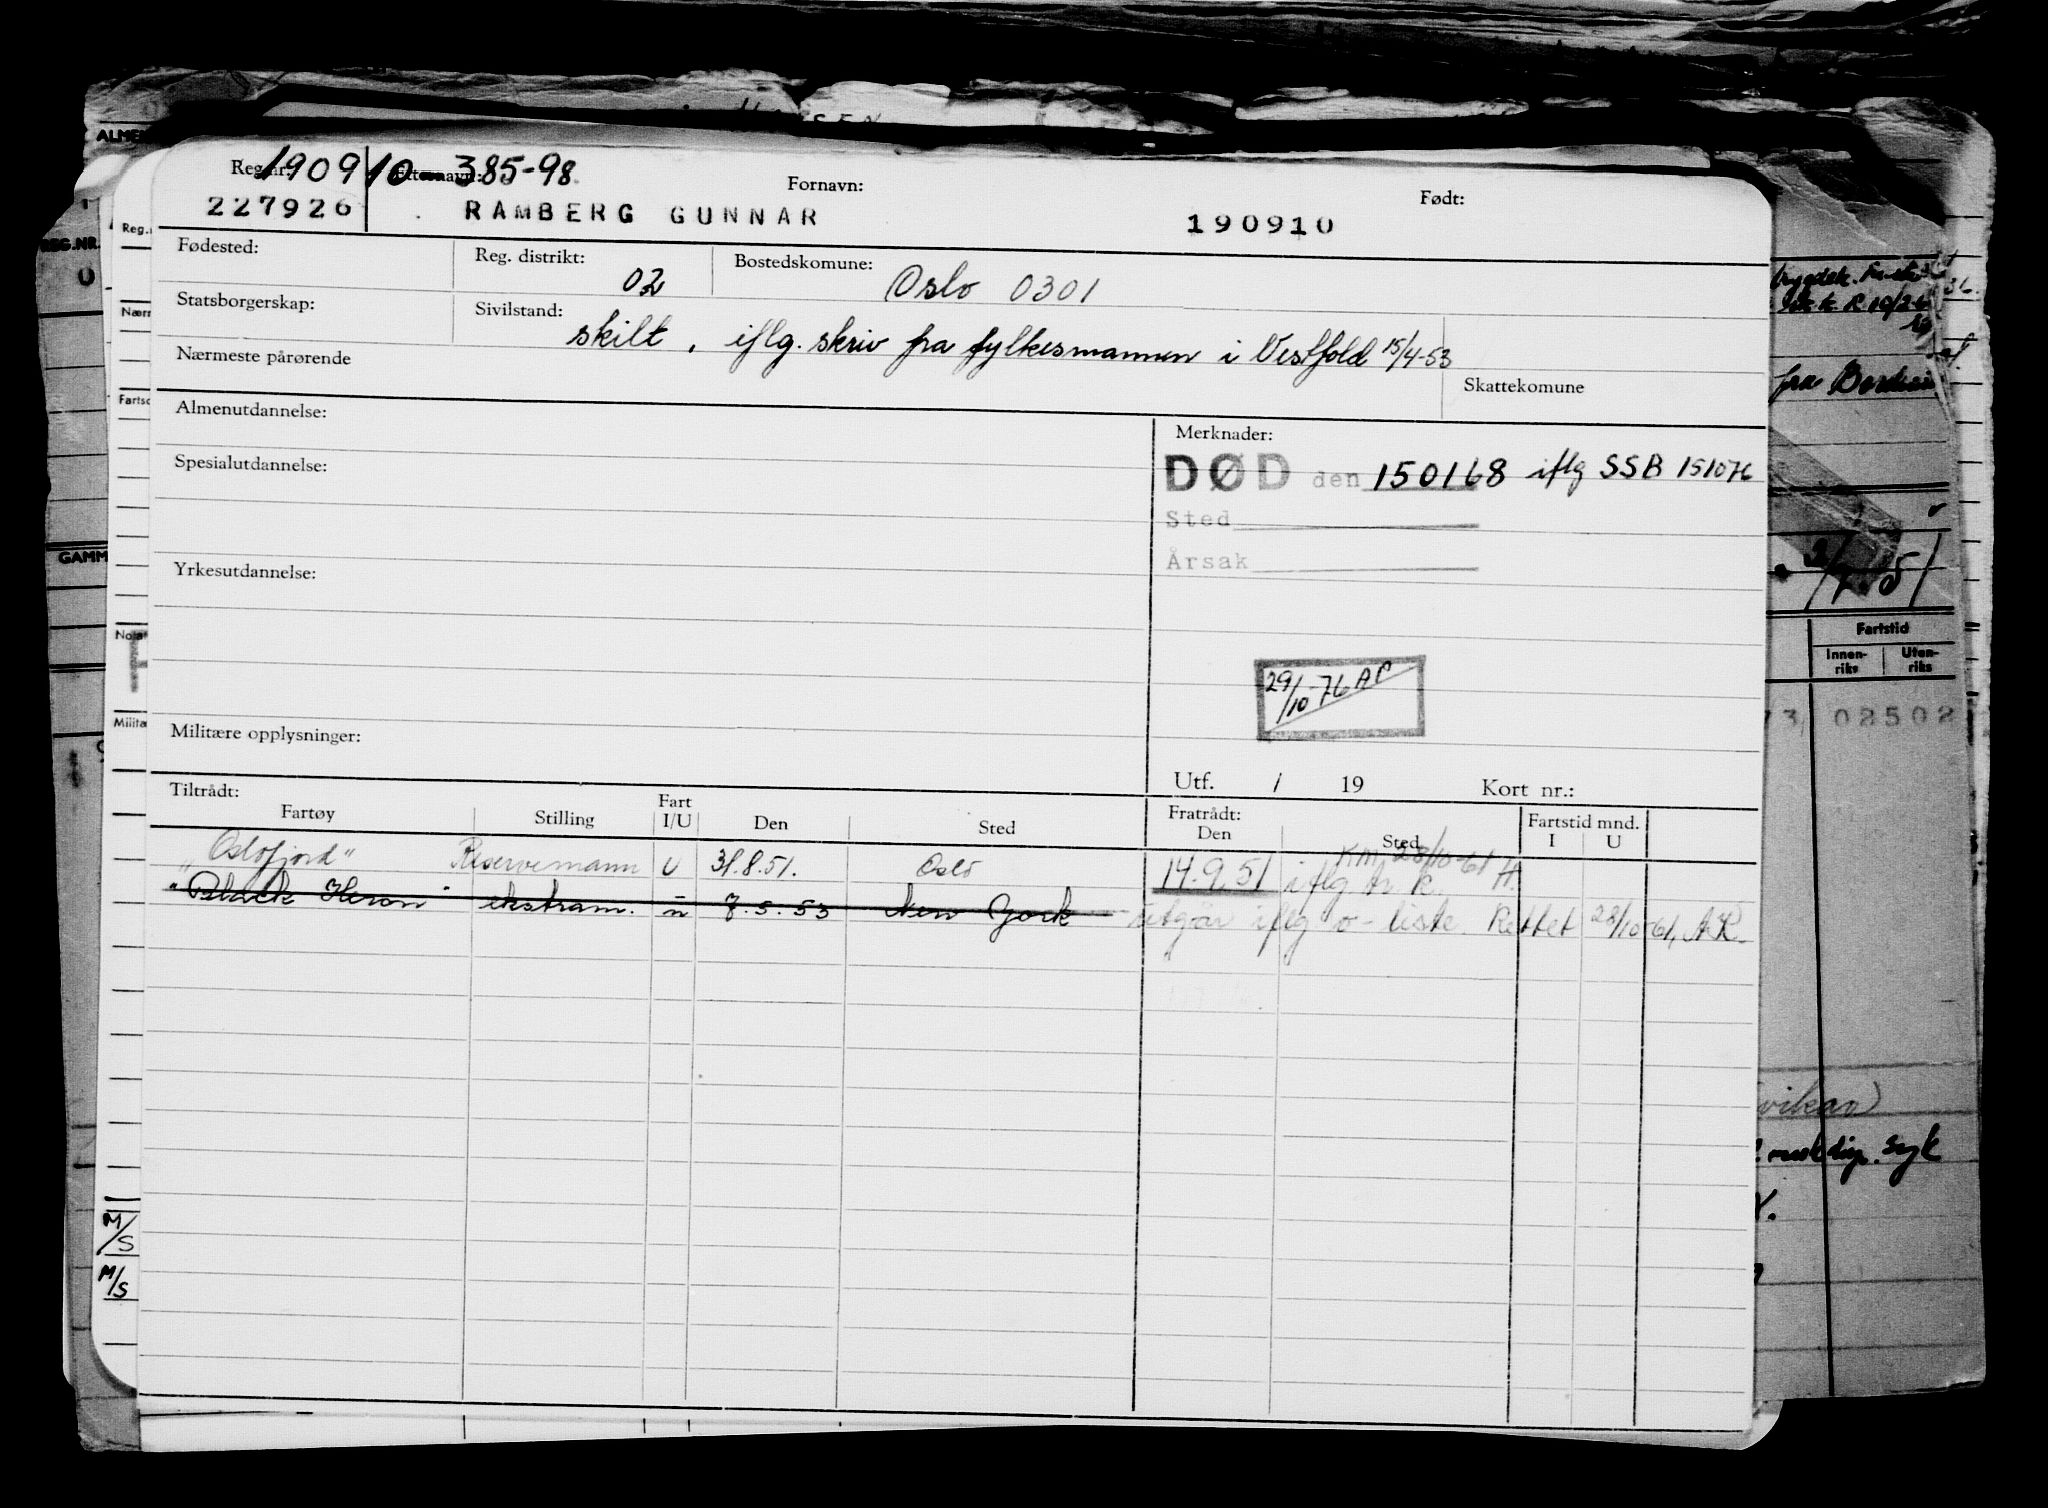 Reg.nr. 190910 Etternavn: 385-98 Fornavn: Født:
227926 RAMBERG GUNNAR 190910
Fødested: Reg. distrikt: 02 Bostedskomune: Oslo 0301
Statsborgerskap: Sivilstand: skilt, iflg. skriv fra fylkesmannen i Vestfold 15/4-53
Nærmeste pårørende Skattekomune
Almenutdannelse: Merknader:
DØD den 150168 iflg SSB 151076
Spesialutdannelse:
Sted
Årsak
Yrkesutdannelse:
29/10-76 AP
Militære opplysninger:
Utf. / 19 Kort nr.:
Tiltrådt: Fratrådt: Fartstid mnd.
Fartøy Stilling Fart I/U Den Sted Den Sted I U
"Oslofjord" Reservemann U 31.8.51. Oslo 14.9.51 iflg A. K. 28/10-61 H.
"Black Heron" ekstram. u 7.5.53 New York utgår iflg o-liste. Rettet 28/10-61, AK.
ALME
REG.NR.
Reg.
Nærn
Fartsc
GAMM
Notat
Militæ
M/S
M/S
fra
Fartstid
Innen-riks Uten-riks
02502
syk